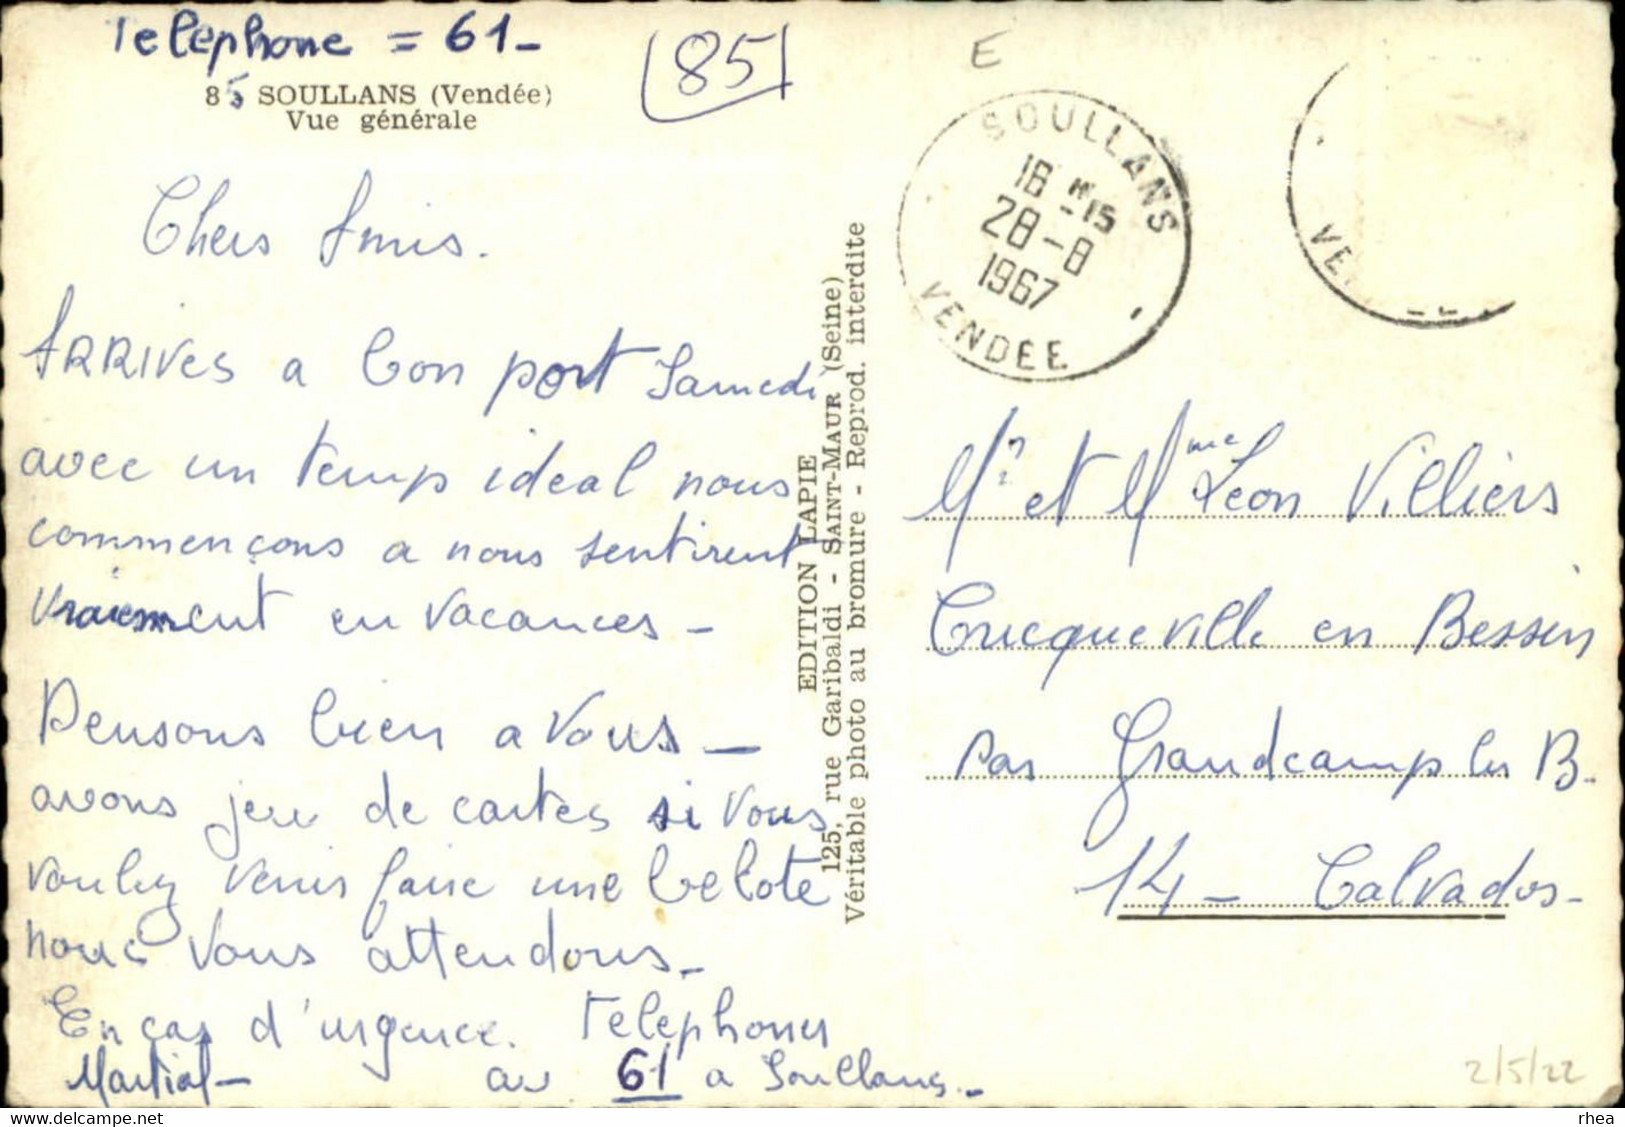 Telephone = 61 -
(85)
E
85 SOULLANS (Vendée)
Vue générale
SOULLANS
18 H 15
28-8
1967
VENDÉE
Chers Amis.
ARRIVES a bon port Samedi
avec un temp ideal nous
commençons a nous sentirent
vraiement en vacances -
Pensons bien a vous -
avons jeu de cartes si vous
vouley venir faire une belote
nous vous attendons -
En cas d'urgence. Telephoner
Martial - au 61 a Soullans -
EDITION LAPIE
125, rue Garibaldi - SAINT-MAUR (Seine)
Véritable photo au bromure - Reprod. interdite
Mr et Mme Leon Villiers
Cricqueville en Bessin
Par Grandcamp les B.
14 - Calvados -
2/5/22
rhea